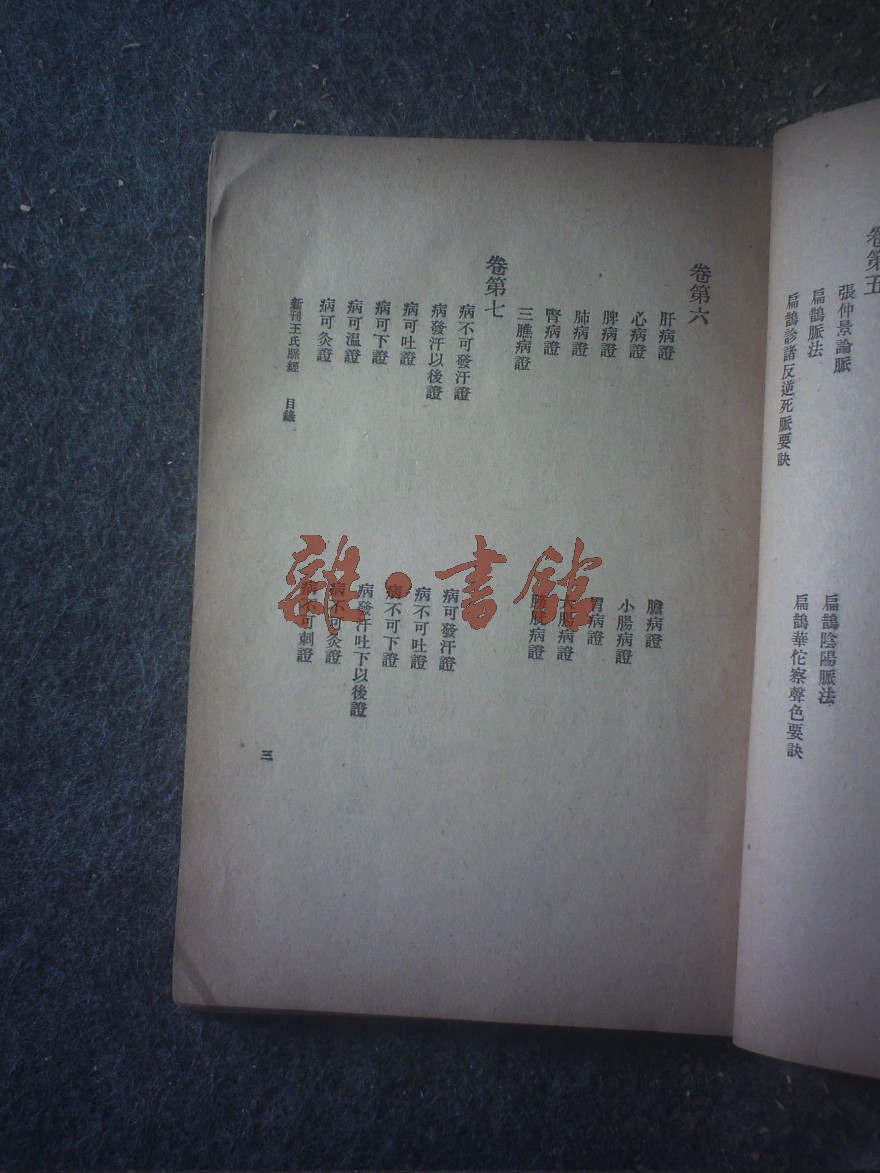 卷第五
張仲景論脈
扁鵲陰陽脈法
扁鵲脈法
扁鵲華佗察聲色要訣
扁鵲診諸反逆死脈要訣
卷第六
肝病證
膽病證
心病證
小腸病證
脾病證
胃病證
肺病證
大腸病證
腎病證
膀胱病證
三膲病證
卷第七
病不可發汗證
病可發汗證
病發汗以後證
病不可吐證
病可吐證
病不可下證
病可下證
病發汗吐下以後證
病可溫證
病不可灸證
病可灸證
病不可刺證
新刊王氏脈經 目錄
三
雜·書館